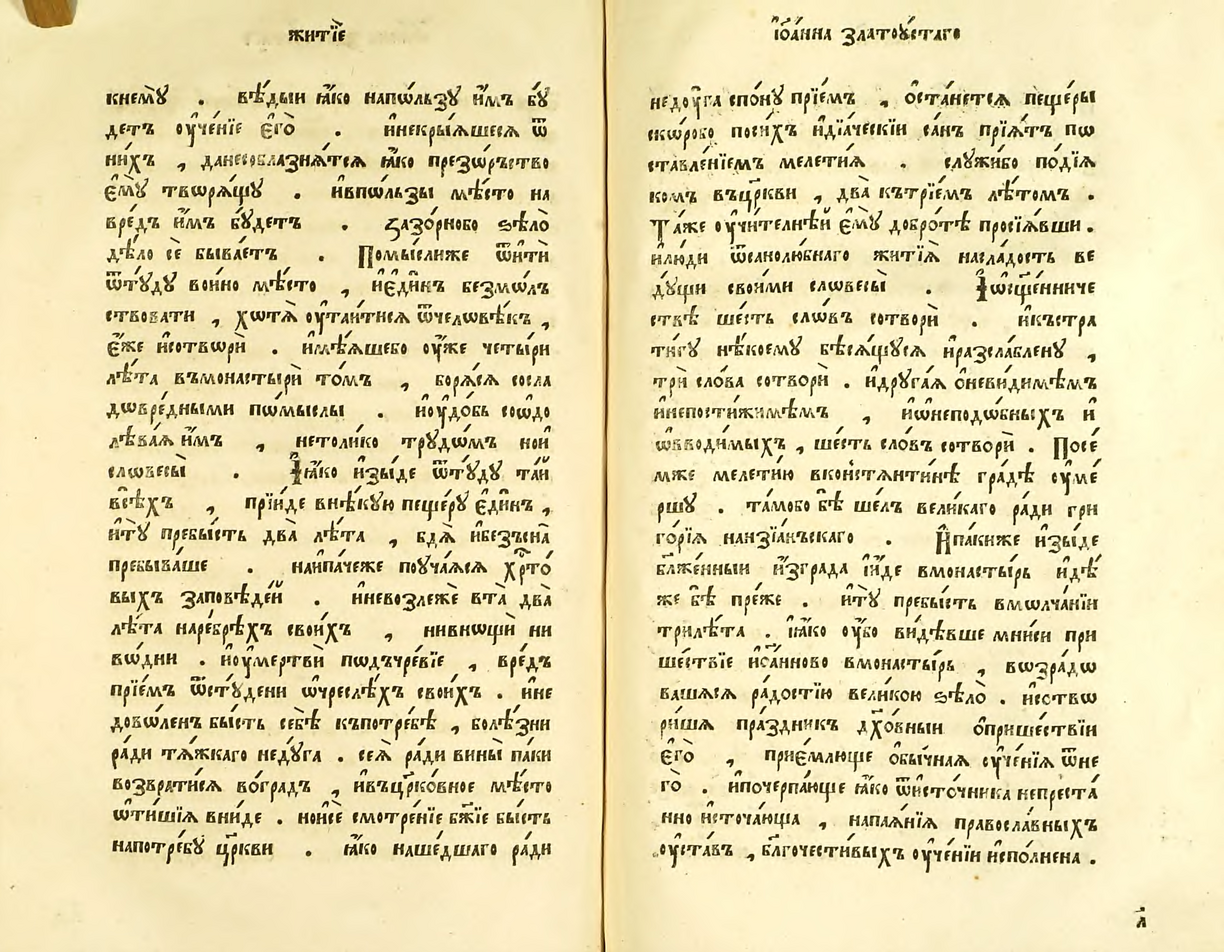 житїѐ
кнемꙋ̀ . вѣ́дыи ꙗ҆́кѡ напѡ́льзꙋ и҆̀мъ бꙋ́
детъ ᲂу҆че́нїе є҆го̀ . и҆некры́ꙗшесѧ ѿ
ни́хъ , данесоблазнѧ́тсѧ ꙗ҆́ко презѡ́рьство
є҆мꙋ̀ творѧ́щꙋ . и҆впѡ́льзы мѣ́сто на
вре́дъ и҆̀мъ бꙋ́детъ . Зазо́рнобо ѕѣлѡ̀
дѣ́ло сѐ быва́етъ . Помы́слиже ѿитѝ
ѿтꙋ́дꙋ вои́но мѣ́сто , и҆є҆ди́нъ безмѡ́лъ
ствовати , хотѧ̀ ᲂу҆таи́тисѧ ѿчеловѣ́къ ,
є҆́же и҆сотворѝ . и҆мѣ́ѧшебо ᲂу҆́же четы́ри
лѣ́та въмонастырѝ то́мъ , борѧ́сѧ сосла
довре́дными по́мыслы . и҆ᲂу҆до́бь соѡдо
лѣва́ѧ и҆̀мъ , нетоли́ко трꙋдо́мъ нои҆
словесы̀ . І҆ꙗ҆́ко и҆зы́де ѿтꙋ́дꙋ таѝ
всѣ́хъ , прїи́де внѣ́кꙋю пещерꙋ є҆ди́нъ ,
и҆тꙋ̀ пребы́сть два̀ лѣ́та , бдѧ̀ и҆безъсна̀
пребыва́ше . наипа́чеже поꙋча́ѧсѧ хрⷭ҇то́
выхъ за́повѣдеи . и҆невозлежѐ вта̀ два̀
лѣ́та наребрѣ́хъ свои́хъ , нивнощѝ ни
во́дни . и҆ᲂу҆мертвѝ подъчре́вїе , вре́дъ
прїе́мъ ѿстꙋ́дени ѡ҆чреслѣ́хъ свои́хъ . и҆не
дово́ленъ бы́сть себѣ̀ къпотре́бѣ , болѣ́зни
ра́ди тѧ́жкаго недꙋ́га . сеѧ̀ ра́ди вины̀ па́ки
возврати́сѧ во́градъ , и҆въцр҃ко́вное мѣ́сто
ѿти́шїѧ вни́де . нои҆се̑ смотре́нїе бж҃їе бы́сть
напотре́бꙋ цр҃кви . ꙗ҆́ко наше́дшаго ра́ди
і҆ѡа́нна златоꙋ́стаго
недꙋ́га спо́нꙋ прїе́мъ , ѡ҆ста́нетсѧ пеще́ры
ско́рѡбо поси́хъ и҆дїа́ческїи са́нъ прїѧ́тъ по
ставле́нїемъ меле́тиѧ . слꙋжи́бо по́дїѧ
комъ въцр҃кви , два̀ кътрїе́мъ лѣ́том .
Та́же ᲂу҆чи́телнѣи є҆мꙋ̀ добро́тѣ просїѧ́вши .
и҆лю́ди ѿсанолю́бнаго житїѧ̀ насла́дость ве
дꙋ́щи свои́ми словесы̀ . І҆ѡсщ҃е́нниче
ствѣ̀ ше́сть сло́въ сотворѝ . и҆къстра
ти́гꙋ нѣ́коемꙋ бѣсѧ́щꙋсѧ и҆разсла́бленꙋ ,
трѝ сло́ва сотворѝ . и҆дрꙋга́ѧ ѡ҆неви́димѣмъ
и҆непости́жимѣмъ , и҆ѡ҆неподо́бныхъ и҆
ѡ҆вводи́мыхъ , ше́сть сло́въ сотворѝ . Посе́
мже меле́тию вкоⷩ҇стѧнти́нѣ гра́дѣ ᲂу҆ме́
ршꙋ . та́мобо бѣ̀ ше́лъ вели́каго ра́ди гри
го́рїѧ нанзїа́ньскаго . И҆па́киже и҆зы́де
блаже́нныи и҆згра́да и҆и҆́де вмонасты́рь и҆дѣ́
же бѣ̀ пре́же . и҆тꙋ̀ пребы́сть вмолча́нїи
трилѣ́та . ꙗ҆́ко ᲂу҆́бо ви́дѣвше мни́си при
ше́ствїе и҆ѡа́нново вмонасты́рь , возра́до
вашѧсѧ ра́достїю вели́кою ѕѣлѡ̀ . и҆сотво
ри́шѧ пра́здникъ дх҃о́вныи ѡ҆прише́ствїи
є҆го̀ , прие́млюще ѡ҆бы́чнаѧ ᲂу҆че́нїѧ ѿне
го̀ . и҆почерпа́юще ꙗ҆́ко ѿисто́чника непреста́
нно и҆сточа́юща , напаѧ́нїѧ правосла́вныхъ
ᲂу҆ста́въ , бл҃гочести́выхъ ᲂу҆че́нїи и҆спо́лнена .
л҃